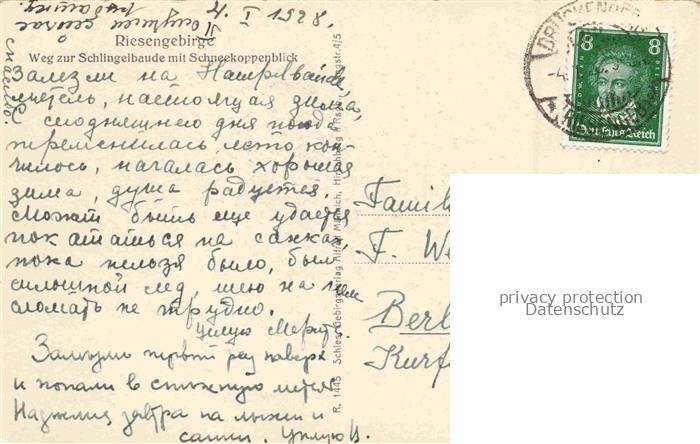 4. I 1928.
Получил сейчас
рубашку.
спасибо.
Riesengebirge
Weg zur Schlingelbaude mit Schneekoppenblick
Залезли на
метель, настоящая зима,
с сегодняшнего дня погода
переменилась, лето кон-
чилось, началась хорошая
зима, душа радуется.
Может быть еще удастся
покататься на санках,
пока нельзя было, был
сплошной лед, шею на нем
сломать не трудно.
Целую
первый раз наверх
и попали в снежную метель.
завтра на лыжи и
санки. Целую
R. 1445 Schles. Gebirgsverlag
DRÜCKENBERG
8 8
Deutsches Reich
Famil
F. We
Berl
Kurf
privacy protection
Datenschutz